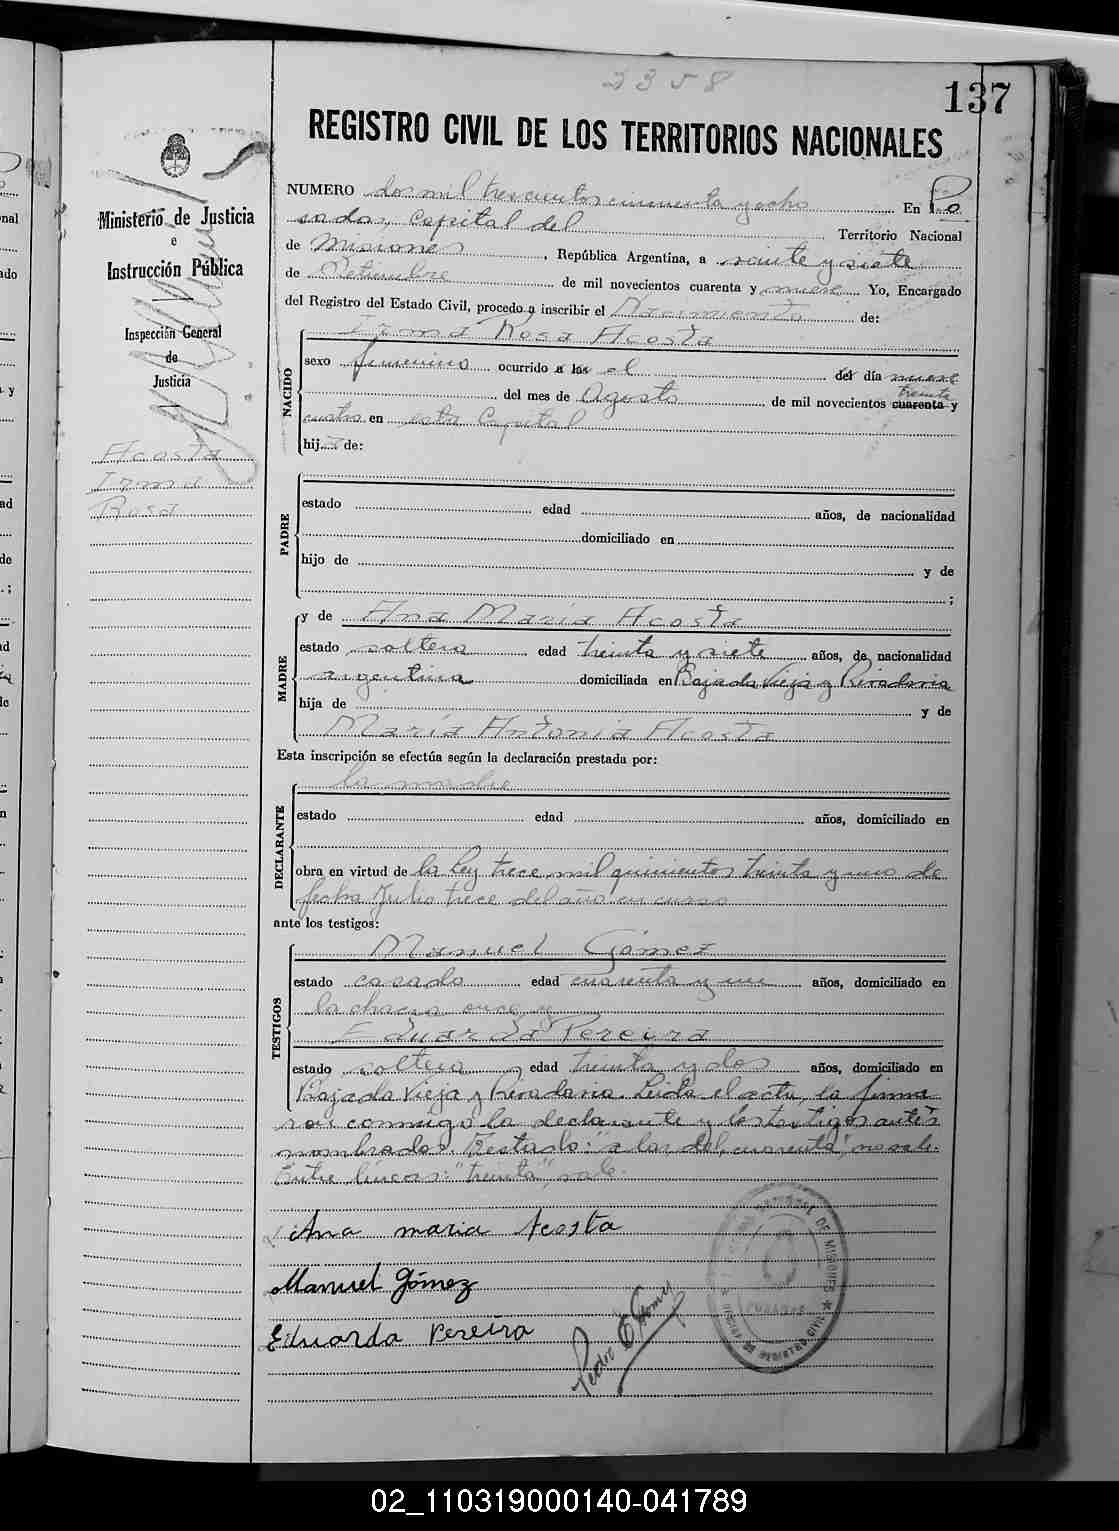 2358
137
REGISTRO CIVIL DE LOS TERRITORIOS NACIONALES
Ministerio de Justicia
e
Instrucción Pública
Inspección General
de
Justicia
Acosta
Irma
Rosa
NUMERO dos mil trescientos cincuenta y ocho En Po
sadas, Capital del Territorio Nacional
de Misiones, República Argentina, a veinte y siete
de Setiembre de mil novecientos cuarenta y nueve Yo, Encargado
del Registro del Estado Civil, procedo a inscribir el Nacimiento de:
NACIDO
Irma Rosa Acosta
sexo femenino ocurrido a las el del día nueve
del mes de Agosto de mil novecientos cuarenta y
treinta
cuatro en esta Capital
hija de:
PADRE
estado edad años, de nacionalidad
domiciliado en
hijo de y de
;
MADRE
y de Ana María Acosta
estado soltera edad treinta y siete años, de nacionalidad
argentina domiciliada en Bajada Vieja y Rivadavia
hija de y de
María Antonia Acosta
Esta inscripción se efectúa según la declaración prestada por:
DECLARANTE
la madre
estado edad años, domiciliado en
obra en virtud de la Ley trece mil quinientos treinta y uno de
fecha Julio trece del año en curso
ante los testigos:
TESTIGOS
Manuel Gómez
estado casado edad cuarenta y un años, domiciliado en
la chacra once y
Eduarda Pereira
estado soltera edad treinta y dos años, domiciliado en
Bajada Vieja y Rivadavia. Leida el acta, la firma
ron conmigo la declarante y los testigos antes
nombrados. Testado: "a las del, cuarenta", no vale.
Entre lineas: "treinta", vale.
Ana maria Acosta
Manuel Gómez
Eduarda Pereira
DE MISIONES
POSADAS
DE REGISTRO CIVIL
02_110319000140-041789